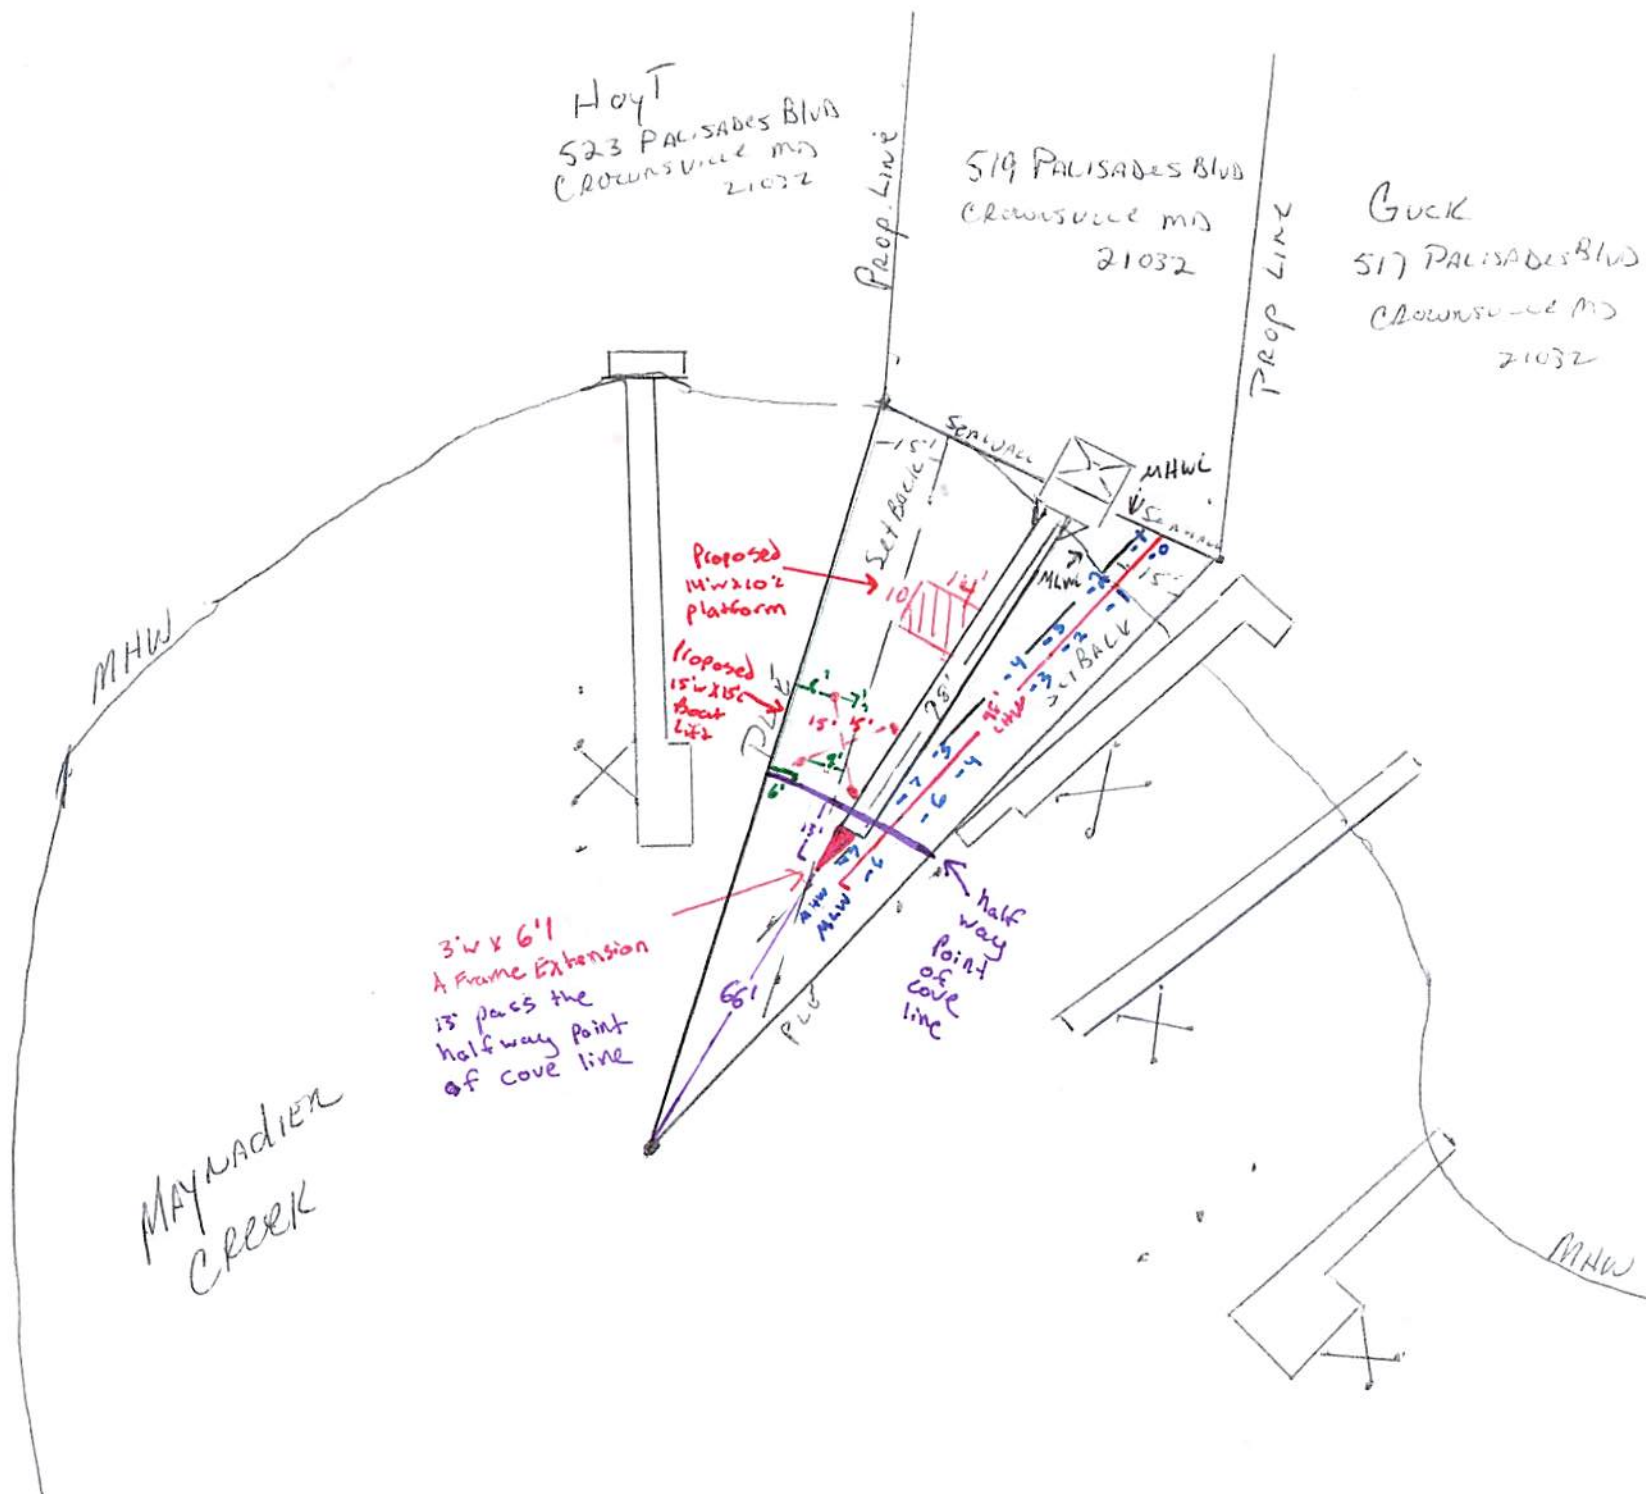 Hoyt
523 PALISADES BLVD
CROWNSVILLE MD
21032
PROP. LINE
519 PALISADES BLVD
CROWNSVILLE MD
21032
PROP LINE
GUCK
517 PALISADES BLVD
CROWNSVILLE MD
21032
SEAWALL
MHWL
SEAWALL
15'
Set Back
15'
MLWL
SETBACK
Proposed
14'w x 10'l
platform
10'
14'
Proposed
15'w x 15'l
Boat
Lift
PLE
6'
7'
15' 15'
9'
6'
78'
-1
-0
-2
-1
-3
-2
-4
-3
-5
-4
-7
-6
-6
98'
MHW
13'
MHW
MLW
half
way
Point
of
cove
line
3'w x 6'l
A Frame Extension
13' pass the
halfway Point
of cove line
66'
PLE
MHW
MAYNADIER
CREEK
MHW